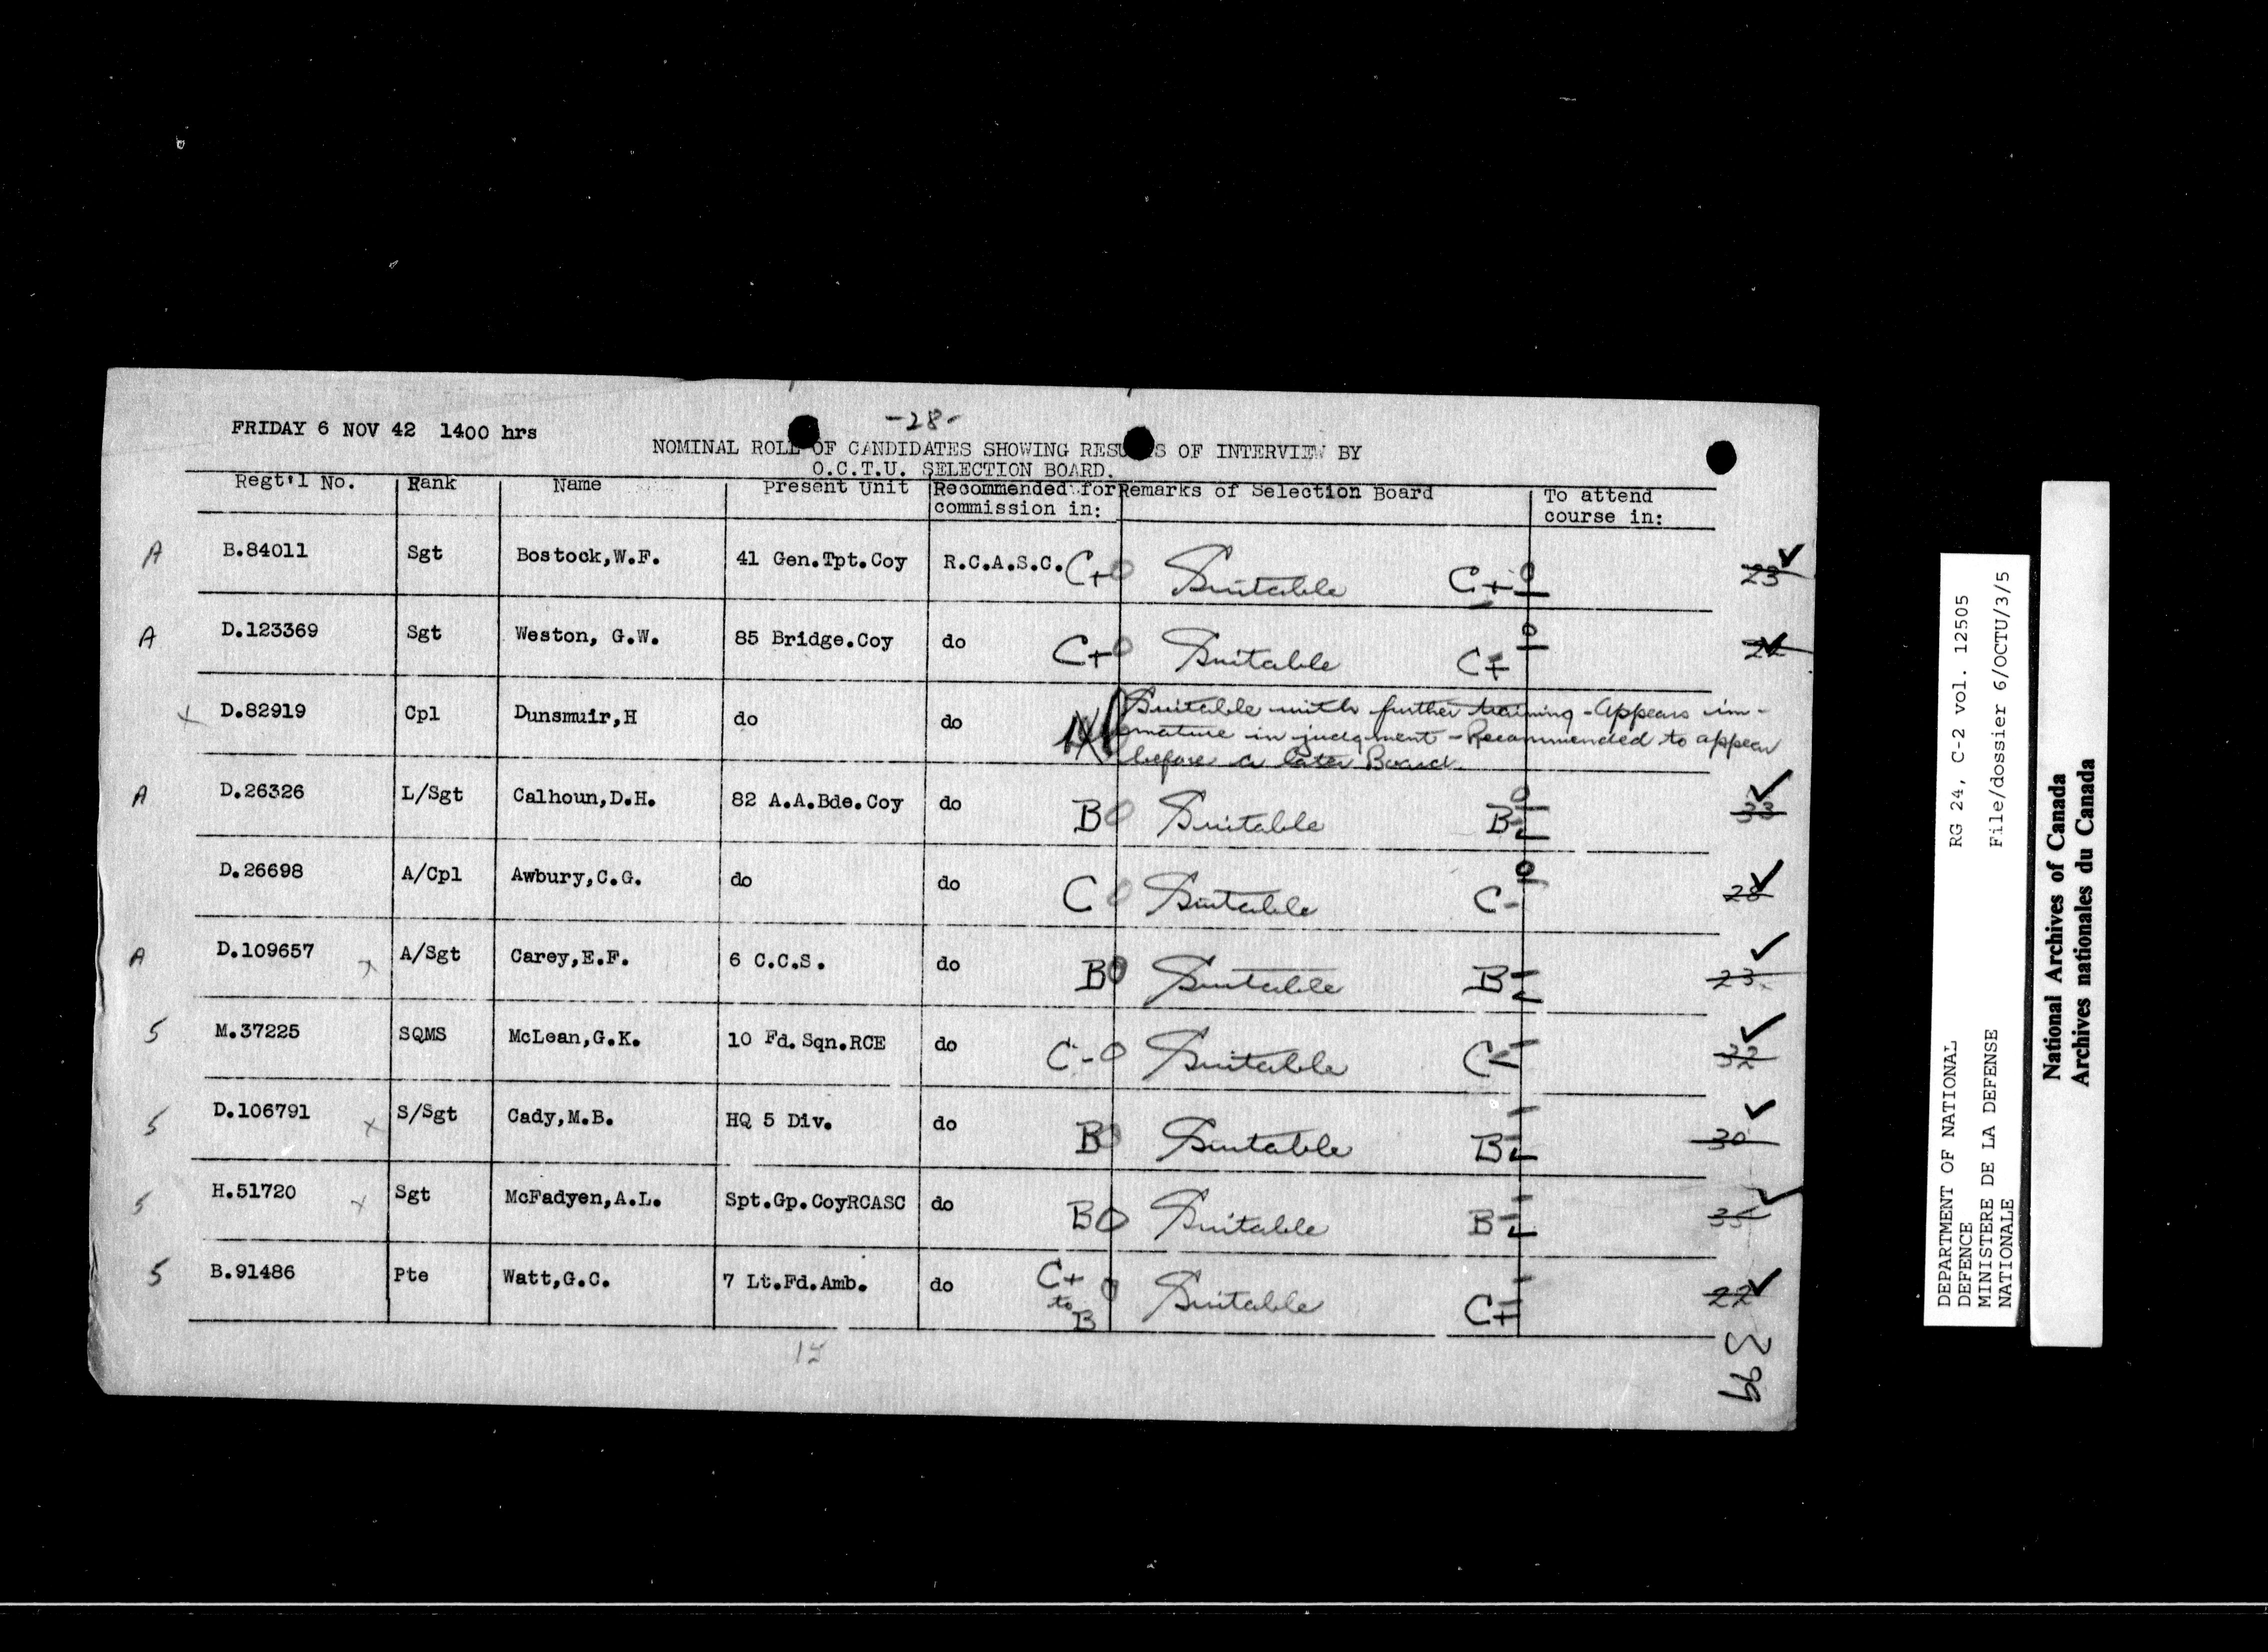 -28-
FRIDAY 6 NOV 42 1400 hrs
NOMINAL ROLL OF CANDIDATES SHOWING RESU S OF INTERVIEW BY
O.C.T.U. SELECTION BOARD.
Regt'l No. Rank Name Present Unit Recommended for commission in: Remarks of Selection Board To attend course in:
A B.84011 Sgt Bostock,W.F. 41 Gen.Tpt.Coy R.C.A.S.C. C+0 Suitable C+ 23
A D.123369 Sgt Weston, G.W. 85 Bridge.Coy do C+0 Suitable C+
x D.82919 Cpl Dunsmuir,H do do Suitable with further training - Appears im-
mature in judgment - Recommended to appear
before a later Board.
A D.26326 L/Sgt Calhoun,D.H. 82 A.A.Bde.Coy do B0 Suitable B- 33
D.26698 A/Cpl Awbury,C.G. do do C0 Suitable C- 28
A D.109657 x A/Sgt Carey,E.F. 6 C.C.S. do B0 Suitable B- 23
5 M.37225 SQMS McLean,G.K. 10 Fd.Sqn.RCE do C-0 Suitable C- 32
5 D.106791 x S/Sgt Cady,M.B. HQ 5 Div. do B0 Suitable B- 30
5 H.51720 x Sgt McFadyen,A.L. Spt.Gp.CoyRCASC do B0 Suitable B- 35
5 B.91486 Pte Watt,G.C. 7 Lt.Fd.Amb. do C+ to B 0 Suitable C+ 22
399
DEPARTMENT OF NATIONAL
DEFENCE
MINISTERE DE LA DEFENSE
NATIONALE
RG 24, C-2 vol. 12505
File/dossier 6/OCTU/3/5
National Archives of Canada
Archives nationales du Canada